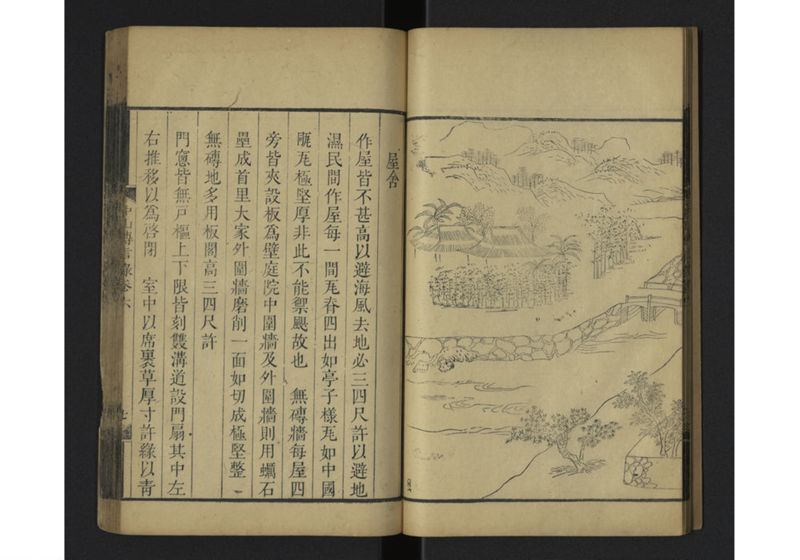 屋舍
作屋皆不甚高以避海風去地必三四尺許以避地
濕民間作屋每一間瓦脊四出如亭子樣瓦如中國
瓦極堅厚非此不能禦颶故也　無磚牆每屋四
旁皆夾設板爲壁庭院中圍牆及外圍牆則用蠣石
壘成首里大家外圍牆磨削一面如切成極堅整
無磚地多用板閣高三四尺許
門窻皆無戶樞上下限皆刻雙溝道設門扇其中左
右推移以爲啓閉　室中以席裹草厚寸許緣以青
中山傳信錄卷六